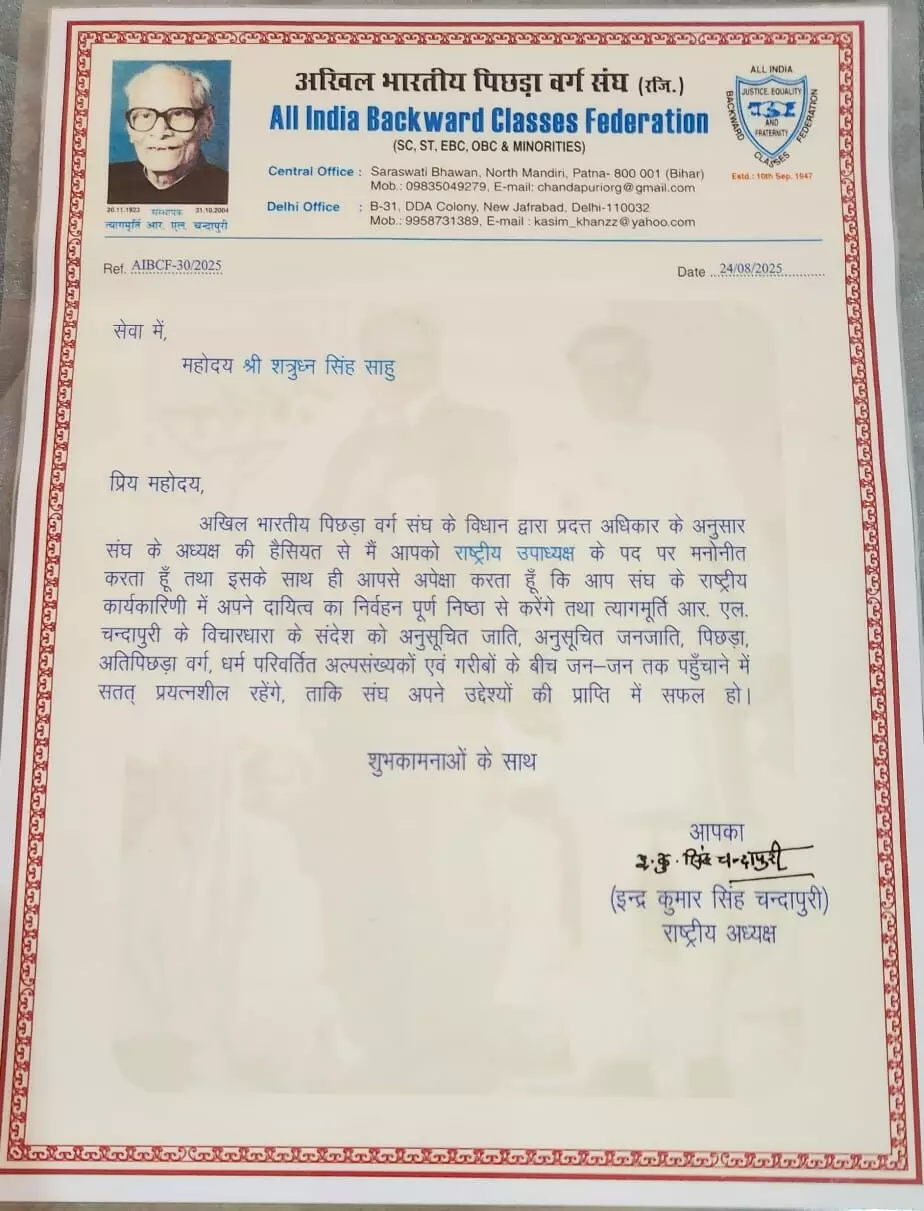 अखिल भारतीय पिछड़ा वर्ग संघ (रजि.)
All India Backward Classes Federation
(SC, ST, EBC, OBC & MINORITIES)
Central Office : Saraswati Bhawan, North Mandiri, Patna- 800 001 (Bihar)
Mob.: 09835049279, E-mail: chandapuriorg@gmail.com
Delhi Office : B-31, DDA Colony, New Jafrabad, Delhi-110032
Mob.: 9958731389, E-mail : kasim_khanzz@yahoo.com
20.11.1923 संस्थापक 31.10.2004
त्यागमूर्ति आर. एल. चन्दापुरी
ALL INDIA
BACKWARD
CLASSES
FEDERATION
JUSTICE, EQUALITY
AND
FRATERNITY
Estd.: 10th Sep. 1947
Ref. AIBCF-30/2025
Date 24/08/2025
सेवा में,
महोदय श्री शत्रुध्न सिंह साहु
प्रिय महोदय,
अखिल भारतीय पिछड़ा वर्ग संघ के विधान द्वारा प्रदत्त अधिकार के अनुसार
संघ के अध्यक्ष की हैसियत से मैं आपको राष्ट्रीय उपाध्यक्ष के पद पर मनोनीत
करता हूँ तथा इसके साथ ही आपसे अपेक्षा करता हूँ कि आप संघ के राष्ट्रीय
कार्यकारिणी में अपने दायित्व का निर्वहन पूर्ण निष्ठा से करेंगे तथा त्यागमूर्ति आर. एल.
चन्दापुरी के विचारधारा के संदेश को अनुसूचित जाति, अनुसूचित जनजाति, पिछड़ा,
अतिपिछड़ा वर्ग, धर्म परिवर्तित अल्पसंख्यकों एवं गरीबों के बीच जन–जन तक पहुँचाने में
सतत् प्रयत्नशील रहेंगे, ताकि संघ अपने उद्देश्यों की प्राप्ति में सफल हो।
शुभकामनाओं के साथ
आपका
इ. कु. सिंह चन्दापुरी
(इन्द्र कुमार सिंह चन्दापुरी)
राष्ट्रीय अध्यक्ष